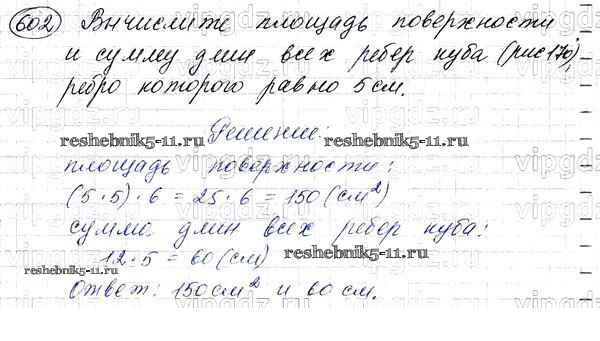 602 Вычислите площадь поверхности
и сумму длин всех ребер куба (рис 170),
ребро которого равно 5 см.
Решение:
reshebnik5-11.ru reshebnik5-11.ru
площадь поверхности:
(5·5)·6=25·6=150 (см²)
сумма длин всех ребер куба:
12·5=60 (см) reshebnik5-11.ru
reshebnik5-11.ru
Ответ: 150 см² и 60 см.